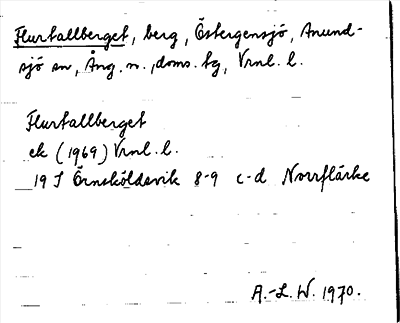 Flurtallberget, berg, Östergensjö, Anund-
sjö sn, Ång. n., doms. tg, Vrnl. l.
Flurtallberget
ek (1969) Vrnl. l.
19 J Örnsköldsvik 8-9 c-d Norrflärke
A.-L. W. 1970.